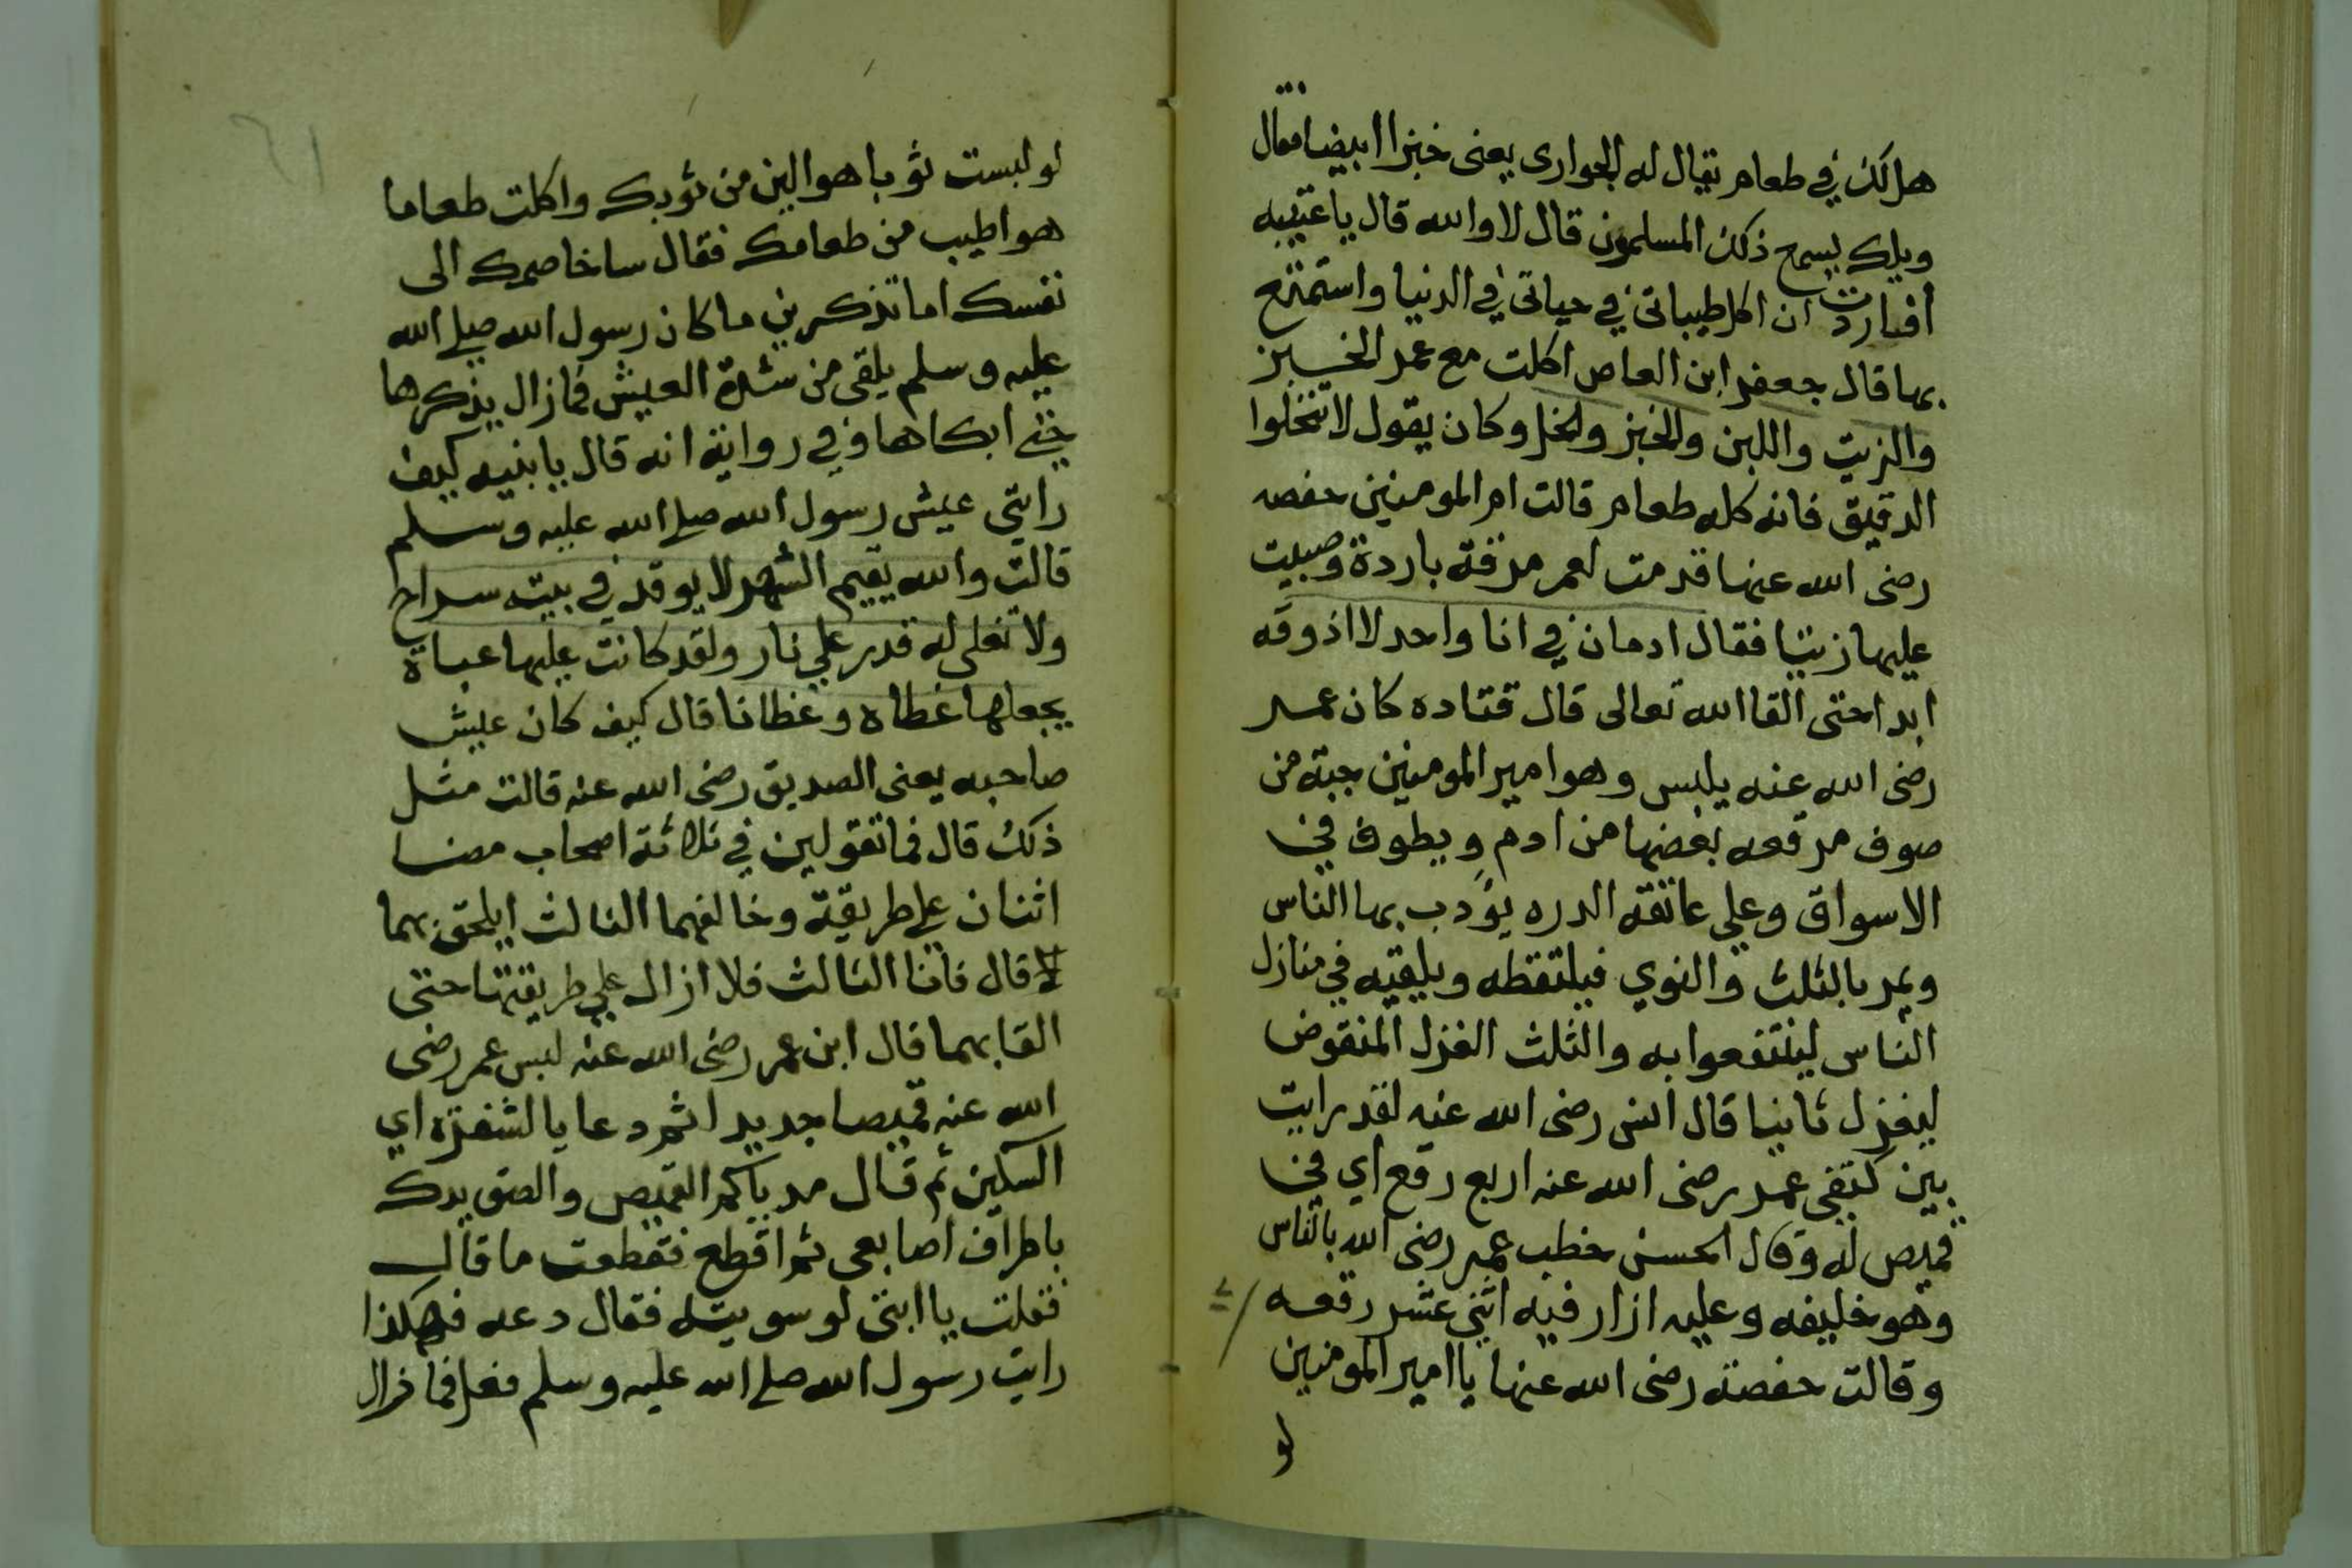 هل لك في طعام يقال له الحوارى يعنى خبزا ابيضا فقال
ويلك يسمع ذلك المسلمون قال لا والله قال يا عتيبه
افاردت ان اكل طيباتى في حياتى في الدنيا واستمتع
بها قال جعفر ابن العاص اكلت مع عمر الخبز
والزيت واللبن والخبز والخل وكان يقول لا تنخلوا
الدقيق فانه كله طعام قالت ام المومنين حفصه
رضى الله عنها قدمت لعمر مرقة باردة وصبيت
عليها زيتا فقال ادمان في انا واحد لا اذوقه
ابدا حتى القا الله تعالى قال قتاده كان عمر
رضى الله عنه يلبس وهو امير المومنين جبة من
صوف مرقعه بعضها من ادم ويطوف في
الاسواق وعلى عاتقه الدره يؤدب بها الناس
ويمر بالثلث والنوي فيلتقطه ويلقيه في منازل
الناس لينتفعوا به والثلث الغزل المنقوض
ليغزل ثانيا قال انس رضى الله عنه لقد رايت
بين كتفى عمر رضى الله عنه اربع رقع اي في
قميص له وقال الحسن خطب عمر رضى الله بالناس
وهو خليفه وعليه ازار فيه اثنى عشر رقعه
وقالت حفصة رضى الله عنها يا امير المومنين
لو
٦١
لو لبست ثوبا هو الين من ثوبك واكلت طعاما
هو اطيب من طعامك فقال ساخاصمك الى
نفسك اما تذكرين ما كان رسول الله صلى الله
عليه وسلم يلقى من شدة العيش فما زال يذكرها
حتى ابكاها وفي رواية انه قال يا بنيه كيف
رايتى عيش رسول الله صلى الله عليه وسلم
قالت والله يقيم الشهر لا يوقد في بيته سراج
ولا تغلى له قدر على نار ولقد كانت عليها عباة
يجعلها غطاه وغطانا قال كيف كان عيش
صاحبه يعنى الصديق رضى الله عنه قالت مثل
ذلك قال فما تقولين في ثلاثة اصحاب مضا
اثنان على طريقة وخالفهما الثالث ايلحق بهما
لا قال فانا الثالث فلا ازال على طريقتهما حتى
القا بهما قال ابن عمر رضى الله عنه لبس عمر رضى
الله عنه قميصا جديدا ثم دعا بالشفرة اي
السكين ثم قال مد ياكم القميص والصق يدك
باطراف اصابعى ثم اقطع فقطعت ما قال
فقلت يا ابتى لو سويته فقال دعه فهكذا
رايت رسول الله صلى الله عليه وسلم فعل فما زال